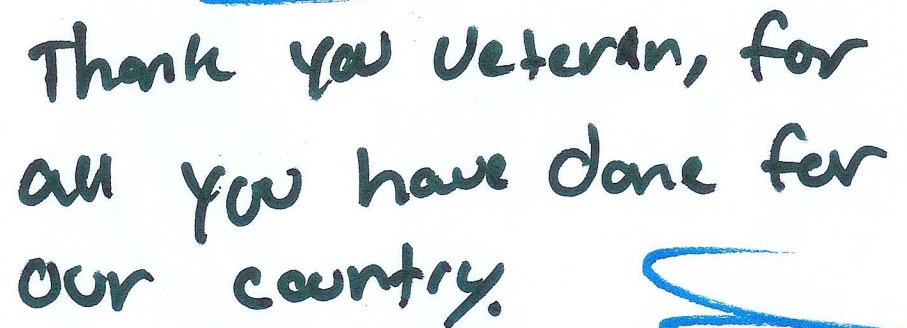 Thank you Veteran, for
all you have done for
our country.